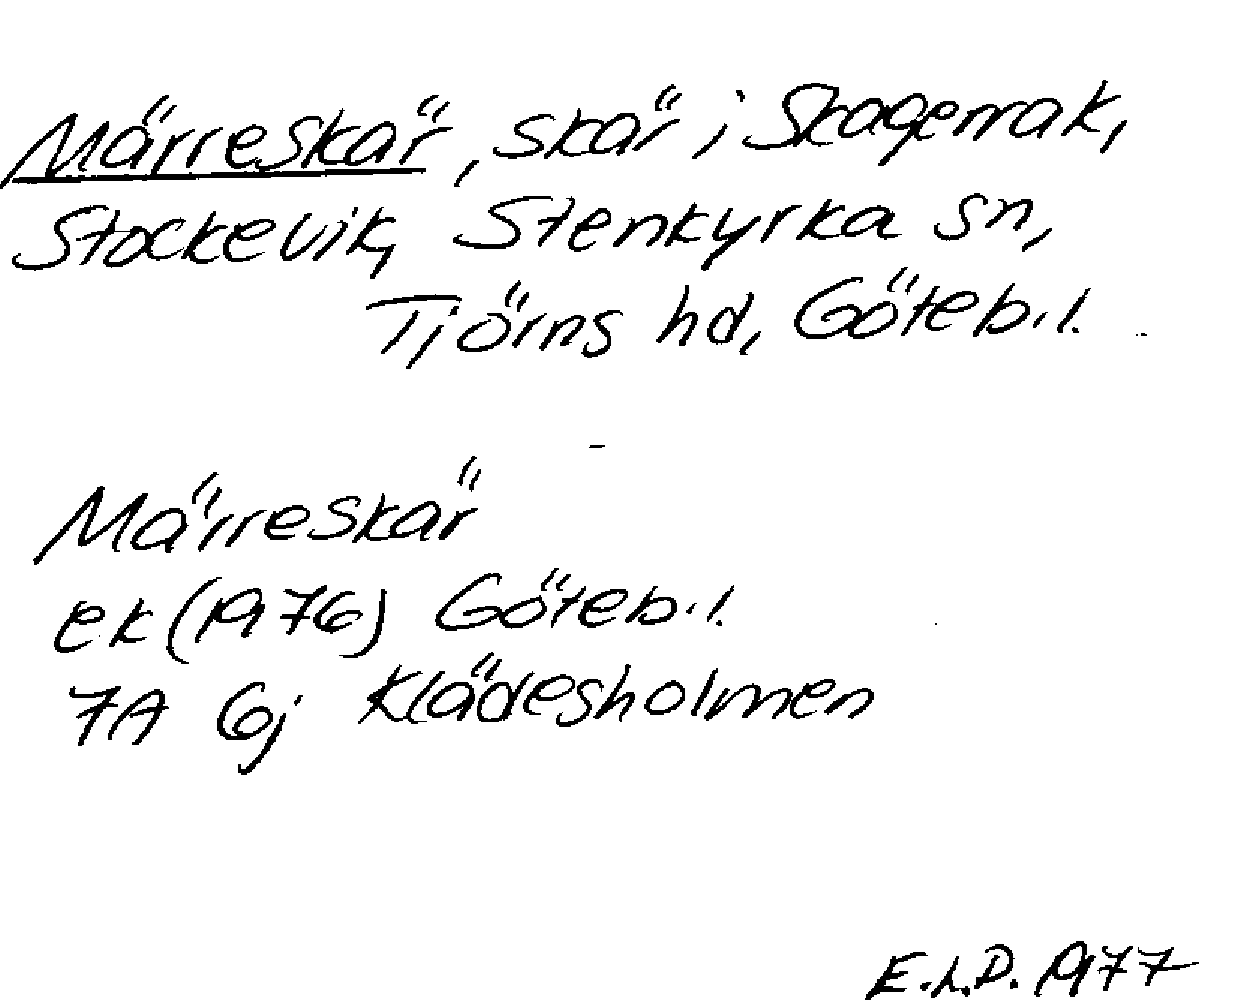 Märreskär, skär i Skagerrak,
Stockevik, Stenkyrka sn,
Tjörns hd, Göteb.l.
Märreskär
ek (1976) Göteb.l.
7A 6j Klädesholmen
E.L.D. 1977